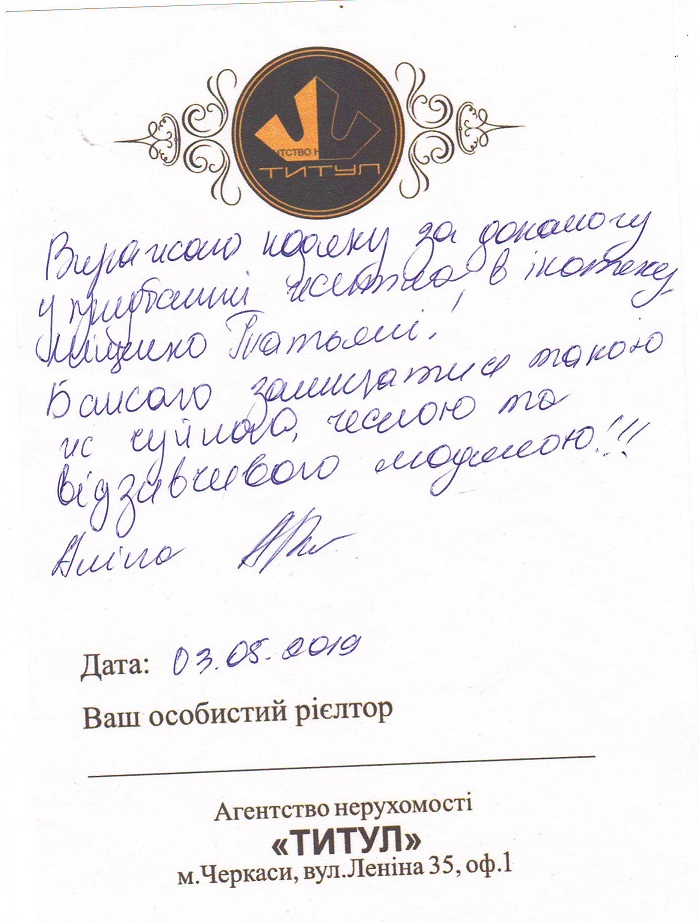 НТСТВО Н
ТИТУЛ
Виражаю подяку за допомогу
у придбанні житла, в іпотеку,
Міщенко Татьяні!
Бажаю залишатися такою
ж чуйною, чесною та
відзивчивою людиною!!!
Аліна
Дата: 03.05.2019
Ваш особистий рієлтор
Агентство нерухомості
«ТИТУЛ»
м.Черкаси, вул.Леніна 35, оф.1